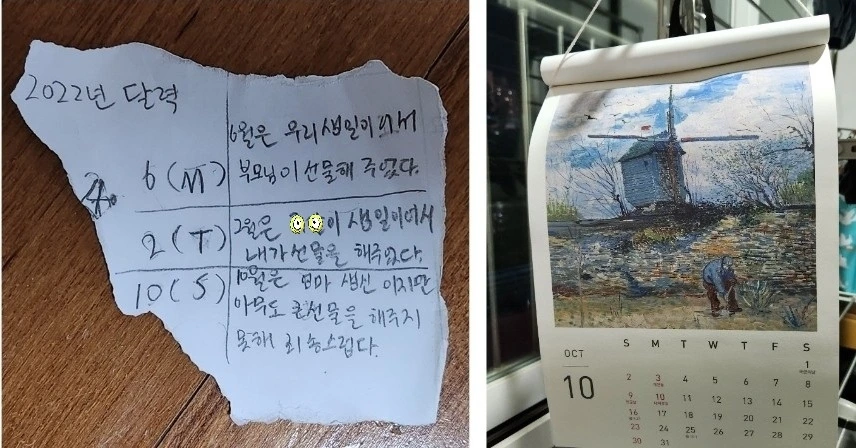 2022년 달력
6월은 우리 생일이어서
6 (M) 부모님이 선물해 주었다.
2 (T) 2월은 이 생일이어서
내가 선물을 해주었다.
10 (S) 10월은 엄마 생신 이지만
아무도 큰선물을 해주지
못해 죄송스럽다.
OCT
10
S M T W T F S
1
2 3 4 5 6 7 8
9 10 11 12 13 14 15
16 17 18 19 20 21 22
23 24 25 26 27 28 29
30 31